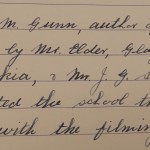 M. Gunn, author
by Mr. Elder, Gla
kia, & Mr. J. G. S
ted the school th
with the filming